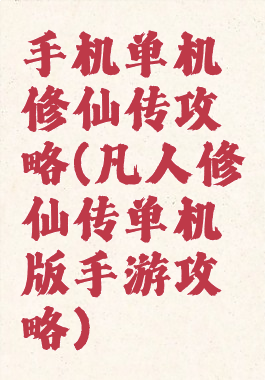 手机单机
修仙传攻
略(凡人修
仙传单机
版手游攻
略)